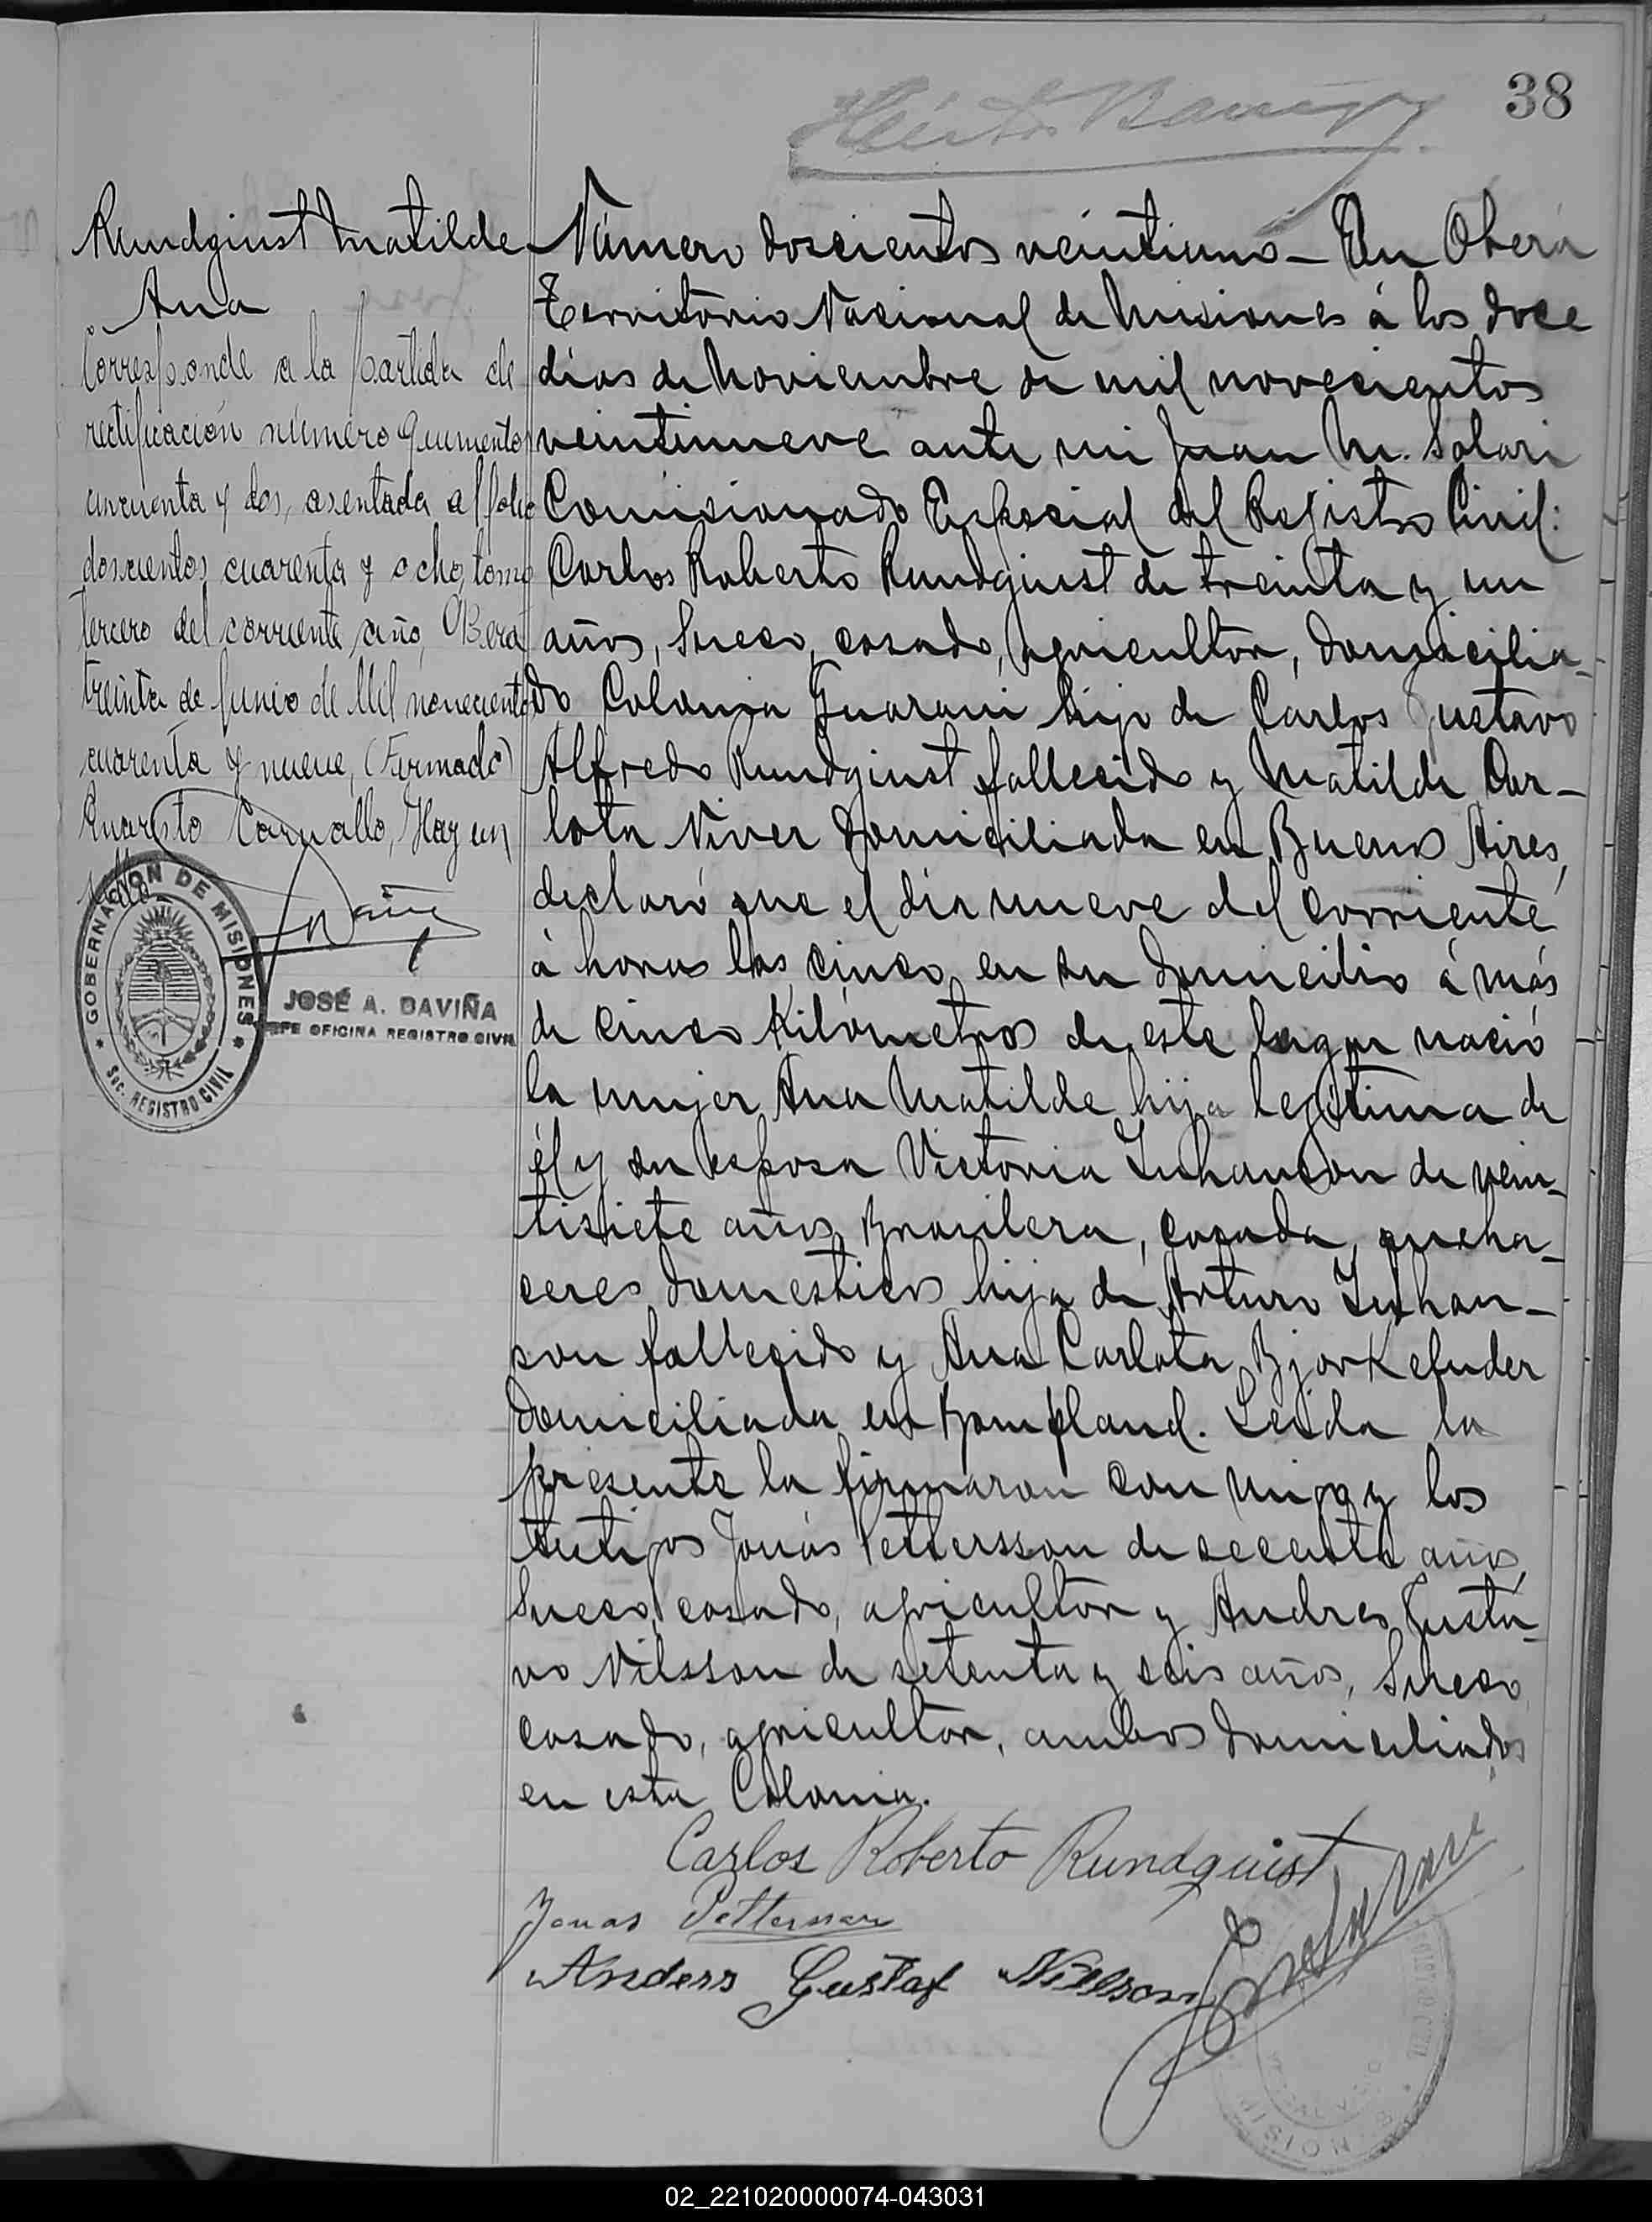 38
Rundquist Matilde
Ana
Corresponde a la partida de
rectificación número quinientos
cincuenta y dos, asentada al folio
doscientos cuarenta y ocho, tomo
tercero del corriente año, Oberá
treinta de Junio de Mil novecientos
cuarenta y nueve, (Firmado)
Evaristo Carvallo, Hay un
sello.
GOBERNACION DE MISIONES
Sec. REGISTRO CIVIL
JOSÉ A. DAVIÑA
JEFE OFICINA REGISTRO CIVIL
Número doscientos veintiuno – En Oberá
Territorio Nacional de Misiones á los doce
días de Noviembre de mil novecientos
veintinueve ante mi Juan M. Solari
Comisionado Especial del Registro Civil:
Carlos Roberto Rundquist de treinta y un
años, Sueco, casado, agricultor, domicilia-
do Colonia Guarani hijo de Carlos Gustavo
Alfredo Rundquist fallecido y Matilde Car-
lota Viver domiciliada en Buenos Aires,
declaró que el día nueve del corriente
á horas las cinco en su domicilio á más
de cinco Kilómetros de este lugar nació
la mujer Ana Matilde hija legítima de
él y su esposa Victoria Iuhanson de vein-
tisiete años, Brasilera, casada, queha-
ceres domesticos hija de Arturo Iuhan-
son fallecido y Ana Carlota Bjorkefuder
domiciliada en Bompland. Leida la
presente la firmaron con migo y los
testigos Jonás Pettersson de secenta años,
Sueco, casado, agricultor y Andres Gusta-
vo Nilsson de setenta y seis años, Sueco,
casado, agricultor, ambos domiciliados
en esta Colonia.
Carlos Roberto Rundquist
Jonas Petterson
Anders Gustaf Nilsson
02_221020000074-043031